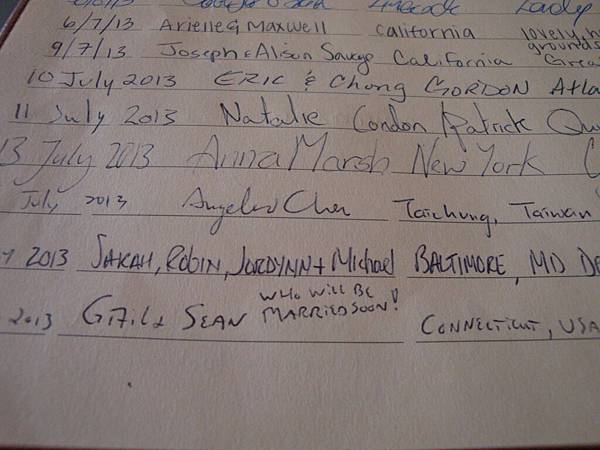 6/7/13 Arielle & Maxwell California lovely
grounds
9/7/13 Joseph & Alison Savage California
10 July 2013 ERIC & Chong GORDON Atla
11 July 2013 Natalie Condon / Patrick Qu
13 July 2013 Anna Marsh New York
July 2013 Chen Taichung, Taiwan
2013 SARAH, ROBIN, JORDYNN + Michael BALTIMORE, MD
WHO WILL BE
2013 & SEAN MARRIED SOON! CONNECTICUT, USA